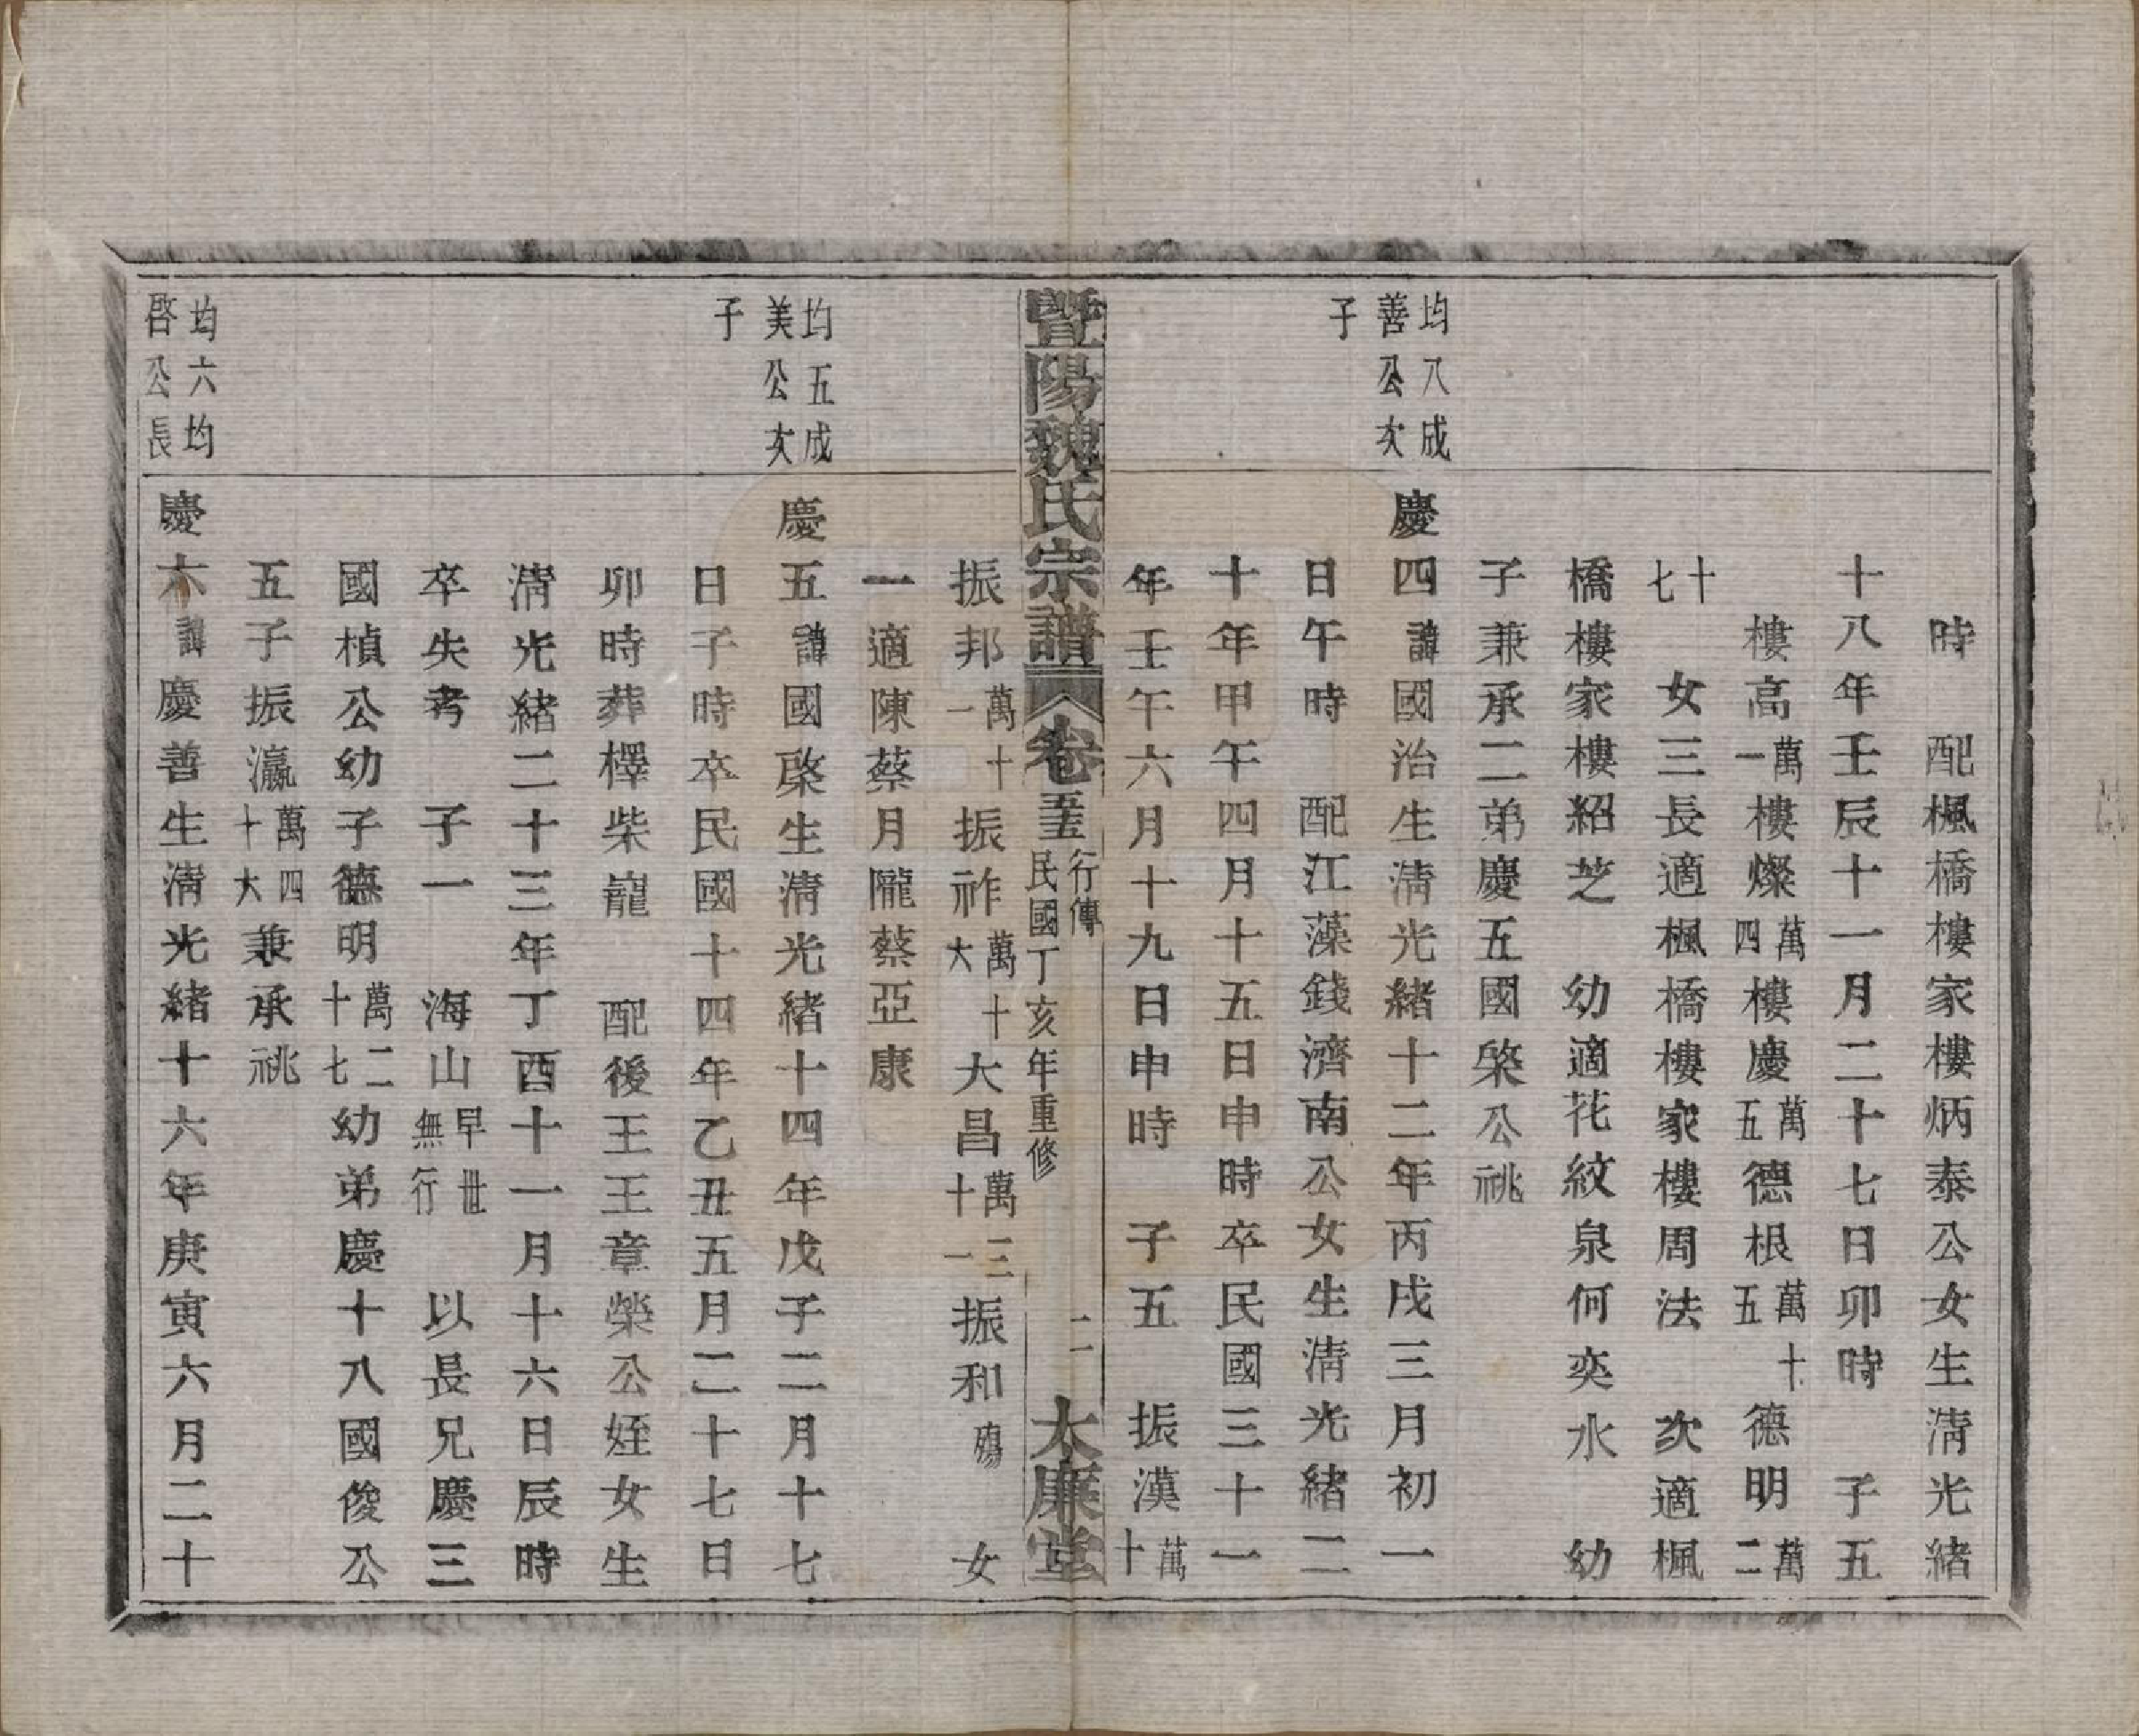 時　配楓橋樓家樓炳泰公女生淸光緒
十八年壬辰十一月二十七日卯時　子五
樓高萬一樓燦萬四樓慶萬五德根萬十五德明萬二
十七　女三長適楓橋樓家樓周法　次適楓
橋樓家樓紹芝　幼適花紋泉何奕水　幼
子兼承二弟慶五國棨公祧
均八成
善公次
子
慶四諱國治生淸光緒十二年丙戌三月初一
日午時　配江藻錢濟南公女生淸光緒二
十年甲午四月十五日申時卒民國三十一
年壬午六月十九日申時　子五　振漢萬十
暨陽魏氏宗譜　卷五五　行傳　民國丁亥年重修　二　大廉堂
振邦萬十一　振祚萬十大　大昌萬三十一　振和殤　女
一適陳蔡月隴蔡亞康
均五成
美公次
子
慶五諱國棨生淸光緒十四年戊子二月十七
日子時卒民國十四年乙丑五月二十七日
卯時葬檡柴巃　配後王王章榮公姪女生
淸光緒二十三年丁酉十一月十六日辰時
卒失考　子一　海山早世無行　以長兄慶三
國楨公幼子德明萬二十七幼弟慶十八國俊公
五子振瀛萬四十大兼承祧
均六均
啓公長
慶六諱慶善生淸光緒十六年庚寅六月二十